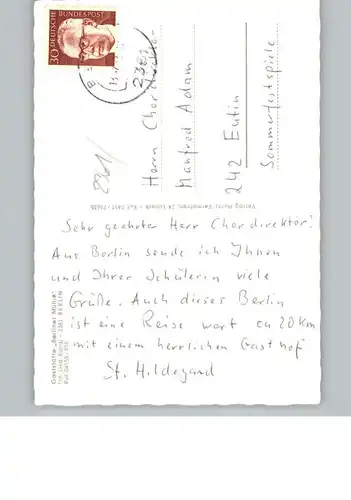 30 DEUTSCHE BUNDESPOST
2361
Herrn Chordirektor
Manfred Adam
242 Eutin
Sommerfestspiele
Sehr geehrter Herr Chordirektor!
Aus Berlin sende ich Ihnen
und Ihrer Schülerin viele
Grüße. Auch dieses Berlin
ist eine Reise wert ca 20 km
mit einem herrlichen Gasthof
St. Hildegard
Gaststätte „Berliner Mühle"
2361 BERLIN